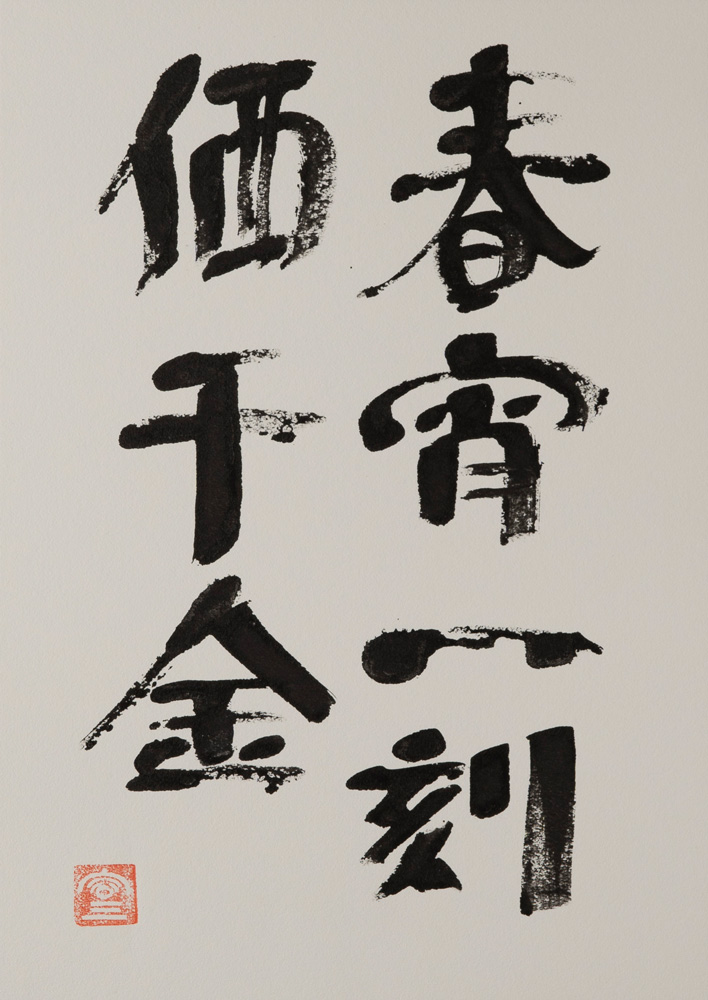 春宵一刻
価千金